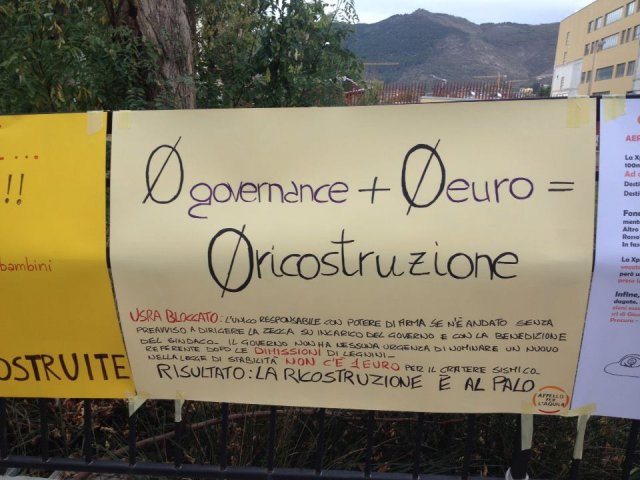 ...
!!
bambini
OSTRUITE
0 governance + 0 euro =
0 ricostruzione
USRA BLOCCATO: L'UNICO RESPONSABILE CON POTERE DI FIRMA SE N'È ANDATO SENZA
PREAVVISO A DIRIGERE LA ZECCA SU INCARICO DEL GOVERNO E CON LA BENEDIZIONE
DEL SINDACO. IL GOVERNO NON HA NESSUNA URGENZA DI NOMINARE UN NUOVO
REFERENTE DOPO LE DIMISSIONI DI LEGNINI...
NELLA LEGGE DI STABILITÀ NON C'È 1 EURO PER IL CRATERE SISMICO.
RISULTATO: LA RICOSTRUZIONE È AL PALO
APPELLO
PER
L'AQUILA
AER
La Xp
100m
Ad o
Desti
Desti
Fond
ment
Altro
Rosso
In fas
La Xp
però u
prese l
Infine,